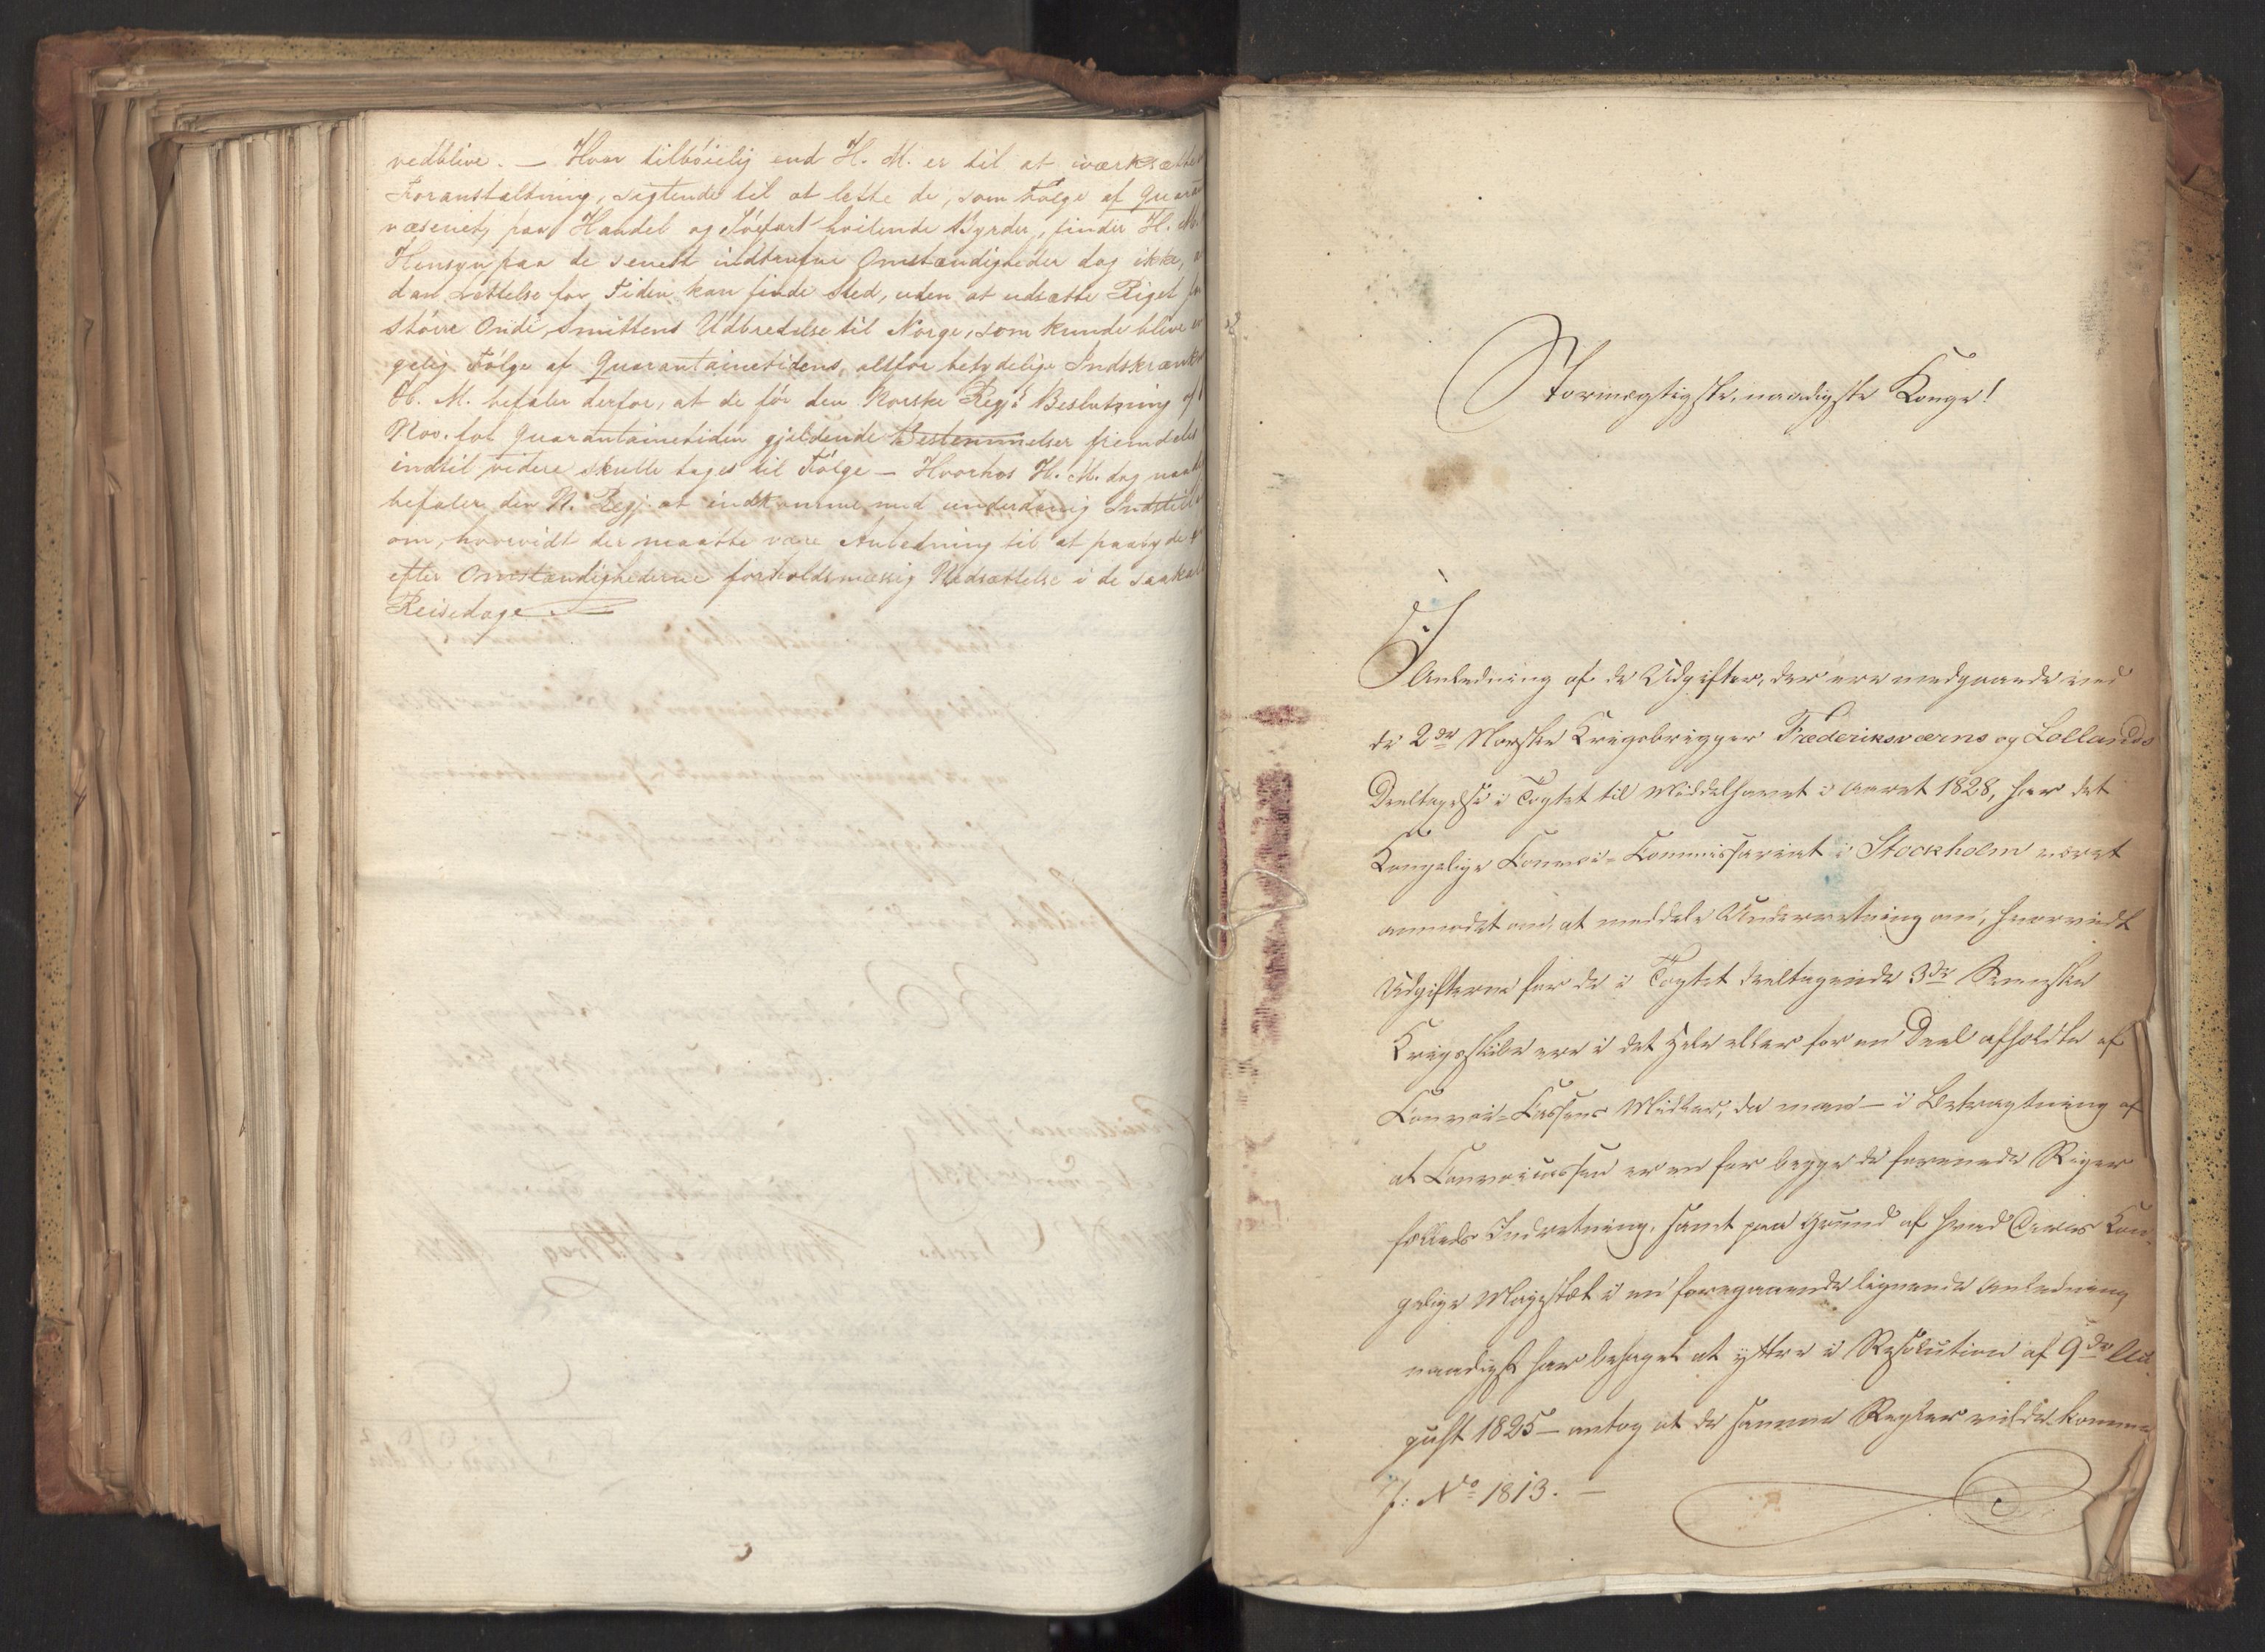 vedblive. — Hvor tilböielig end H. M. er til at iværksætte
Foranstaltning, sigtende til at lette de, som Følge af Quaran
væsenet, paa Handel og Söefart hvilende Byrder, finder H. M.
Hensyn paa de senest indtrufne Omstændigheder dog ikke,
dan Lettelse for Tiden kan finde Sted, uden at udsætte Riget for
större Onde, Smittens Udbredelse til Norge, som kunde blive en
gelig Følge af Quarantainetidens altfor betydelige Indskrænkn
H. M. befaler derfor, at de för den Norske Regjs Beslutning af
Nov. for Quarantainetiden gjeldende Bestemmelser fremdeles
indtil videre skulle tages til Følge — Hvorhos H. M. dog naadig
befaler den N. Regj. at indkomme med underdanig Indstill
om, hvorvidt der maatte være Anledning til at paabyde
efter Omstændighederne forholdsmæssig Nedsættelse i de saakal
Reisedage.
Stormægtigste, naadigste Konge!
I Anledning af de Udgifter, der ere medgaaede ved
de 2de Norske Krigsbrigger Fræderiksværns og Lollands
Deeltagelse i Togtet til Middelhavet i Aaret 1828, har det
Kongelige Convoi-Commissariat i Stockholm været
anmodet om, at meddele Underretning om, hvorvidt
Udgifterne for de i Togtet deeltagende 3de Svenske
Krigsskibe ere i det Hele eller for en Deel afholdte af
Convoi-Cassens Midler, da man — i Betragtning af
at Convoicassen er en for begge de forenede Riger
fælleds Indretning, samt paa Grund af hvad Deres Kon-
gelige Majestæt i en foregaaende lignende Anledning
naadigst har behaget at yttre i Resolution af 9de Au-
gust 1825 — antog at de samme Regler vilde komme
J: No 1813. —